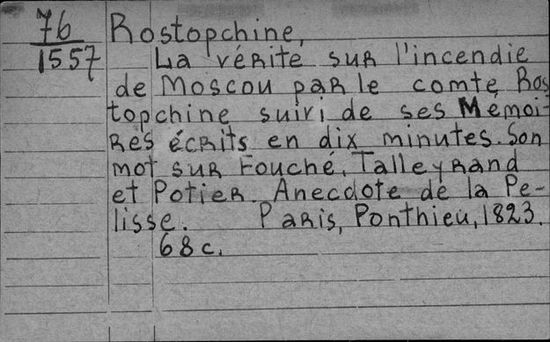 76 Rostopchine,
1557 La vérité sur l'incendie
de Moscou par le comte Ros
topchine suivi de ses Mémoi-
res écrits en dix minutes. Son
mot sur Fouché, Talleyrand
et Potier. Anecdote de la Pe-
lisse. Paris, Ponthieu, 1823.
68 c.